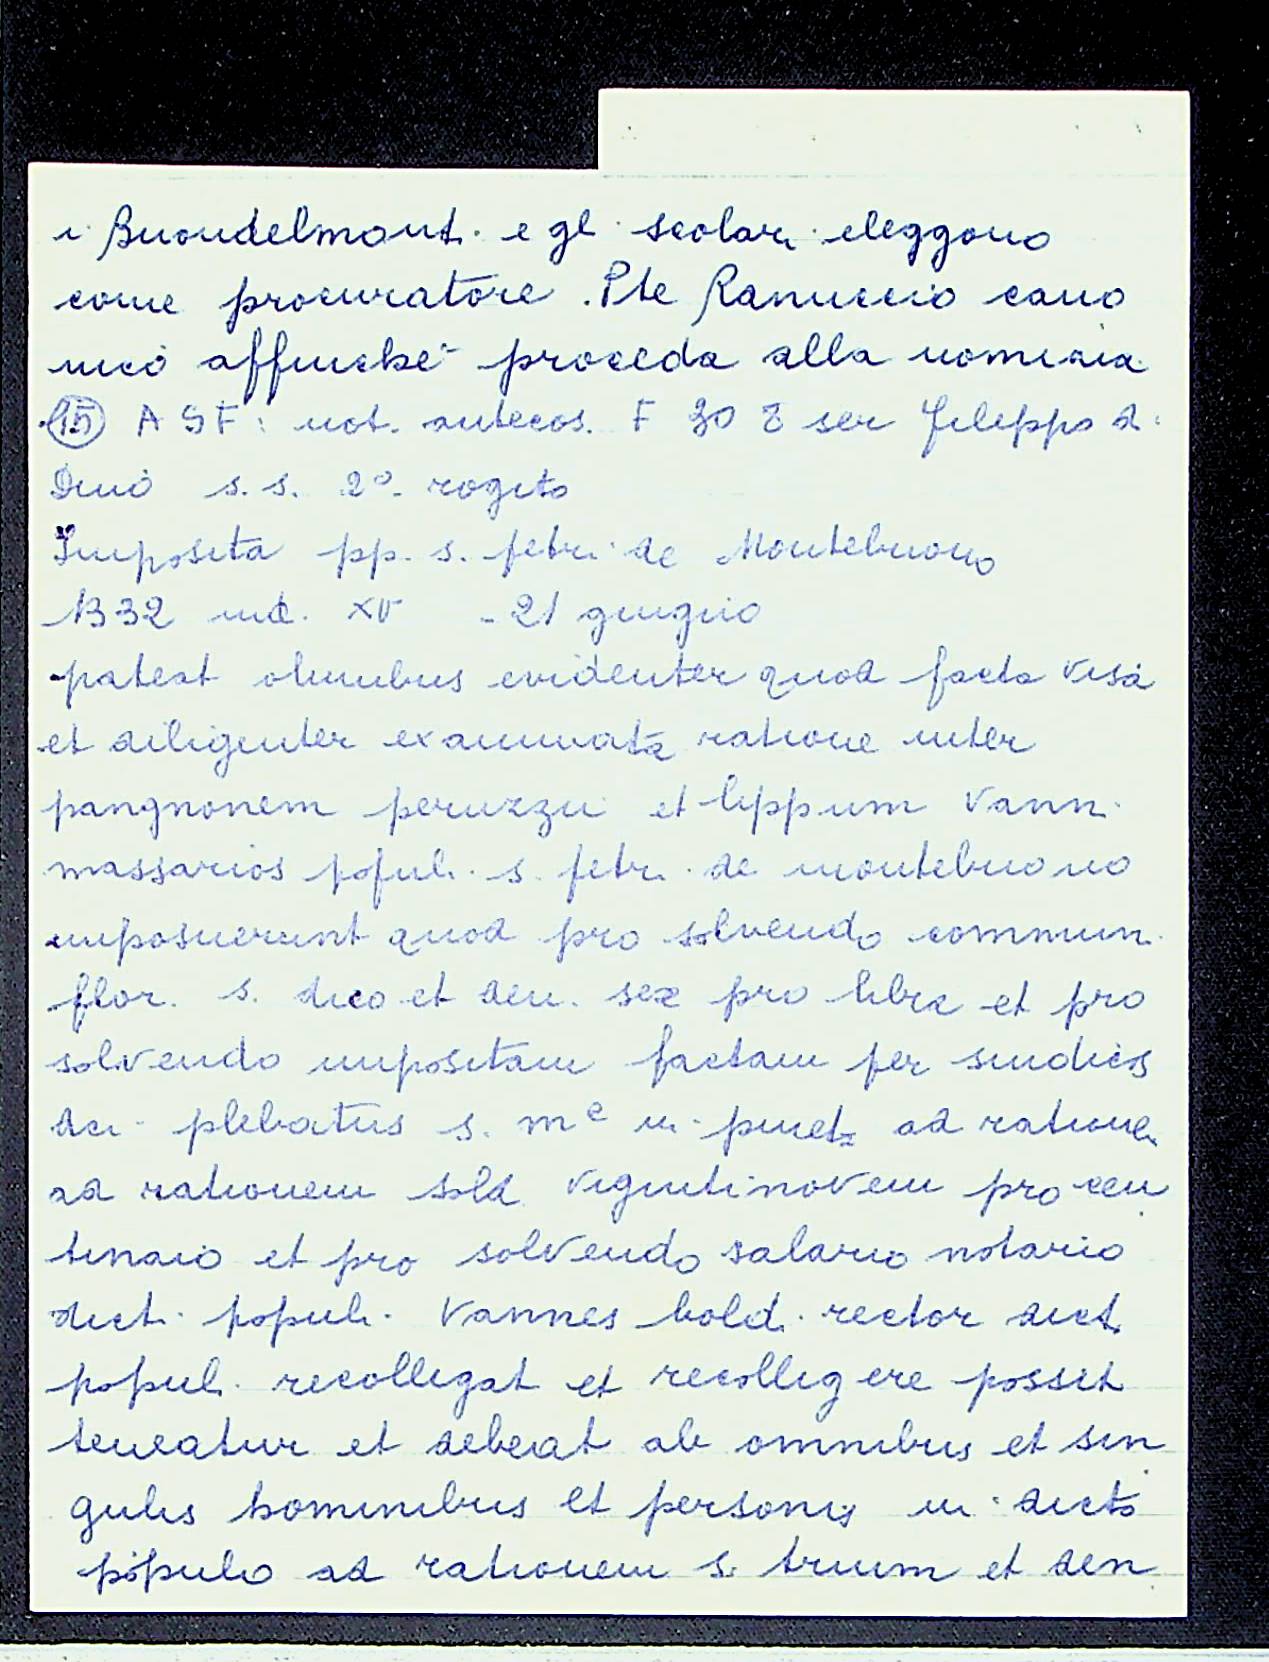 i Buondelmonti e gli scolari eleggono
come procuratore Pte Ranuccio cano
nico affinché proceda alla nomina
(15) ASF: not. antecos. F 30 ser Fileppo di
Dino s.s. 2º rogito
Imposita pp. s. petri de Montebuono
1332 ind. XV - 21 giugno
pateat omnibus evidenter quod facta visa
et diligenter examinata ratione inter
pangnonem peruzzii et lippum Vanni
massarios populi s. petri de montebuono
imposuerunt quod pro solvendo communi
flor. s. dico et den. sex pro libra et pro
solvendo impositam factam per sindicos
dci plebatus s. me in pineta ad rationem
ad rationem sold vigintinovem pro cen
tinaio et pro solvendo salario notario
dicti populi. Vannes boldi rector dicti
populi recolligat et recolligere possit
teneatur et debeat ab omnibus et sin
gulis hominibus et personis in dicto
populo ad rationem s. trium et den